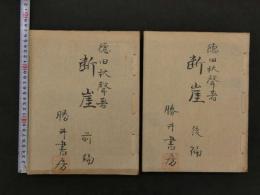 徳田秋聲著
断崖
前編
勝井書房
徳田秋聲著
断崖
後編
勝井書房